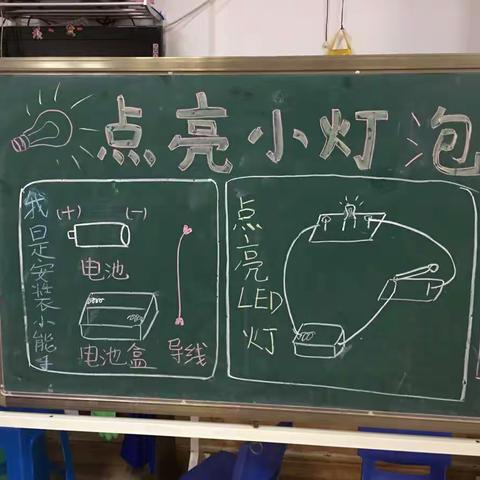 点亮小灯泡
我是安装小能手
(+) (-)
电池
电池盒 导线
点亮
LED
灯